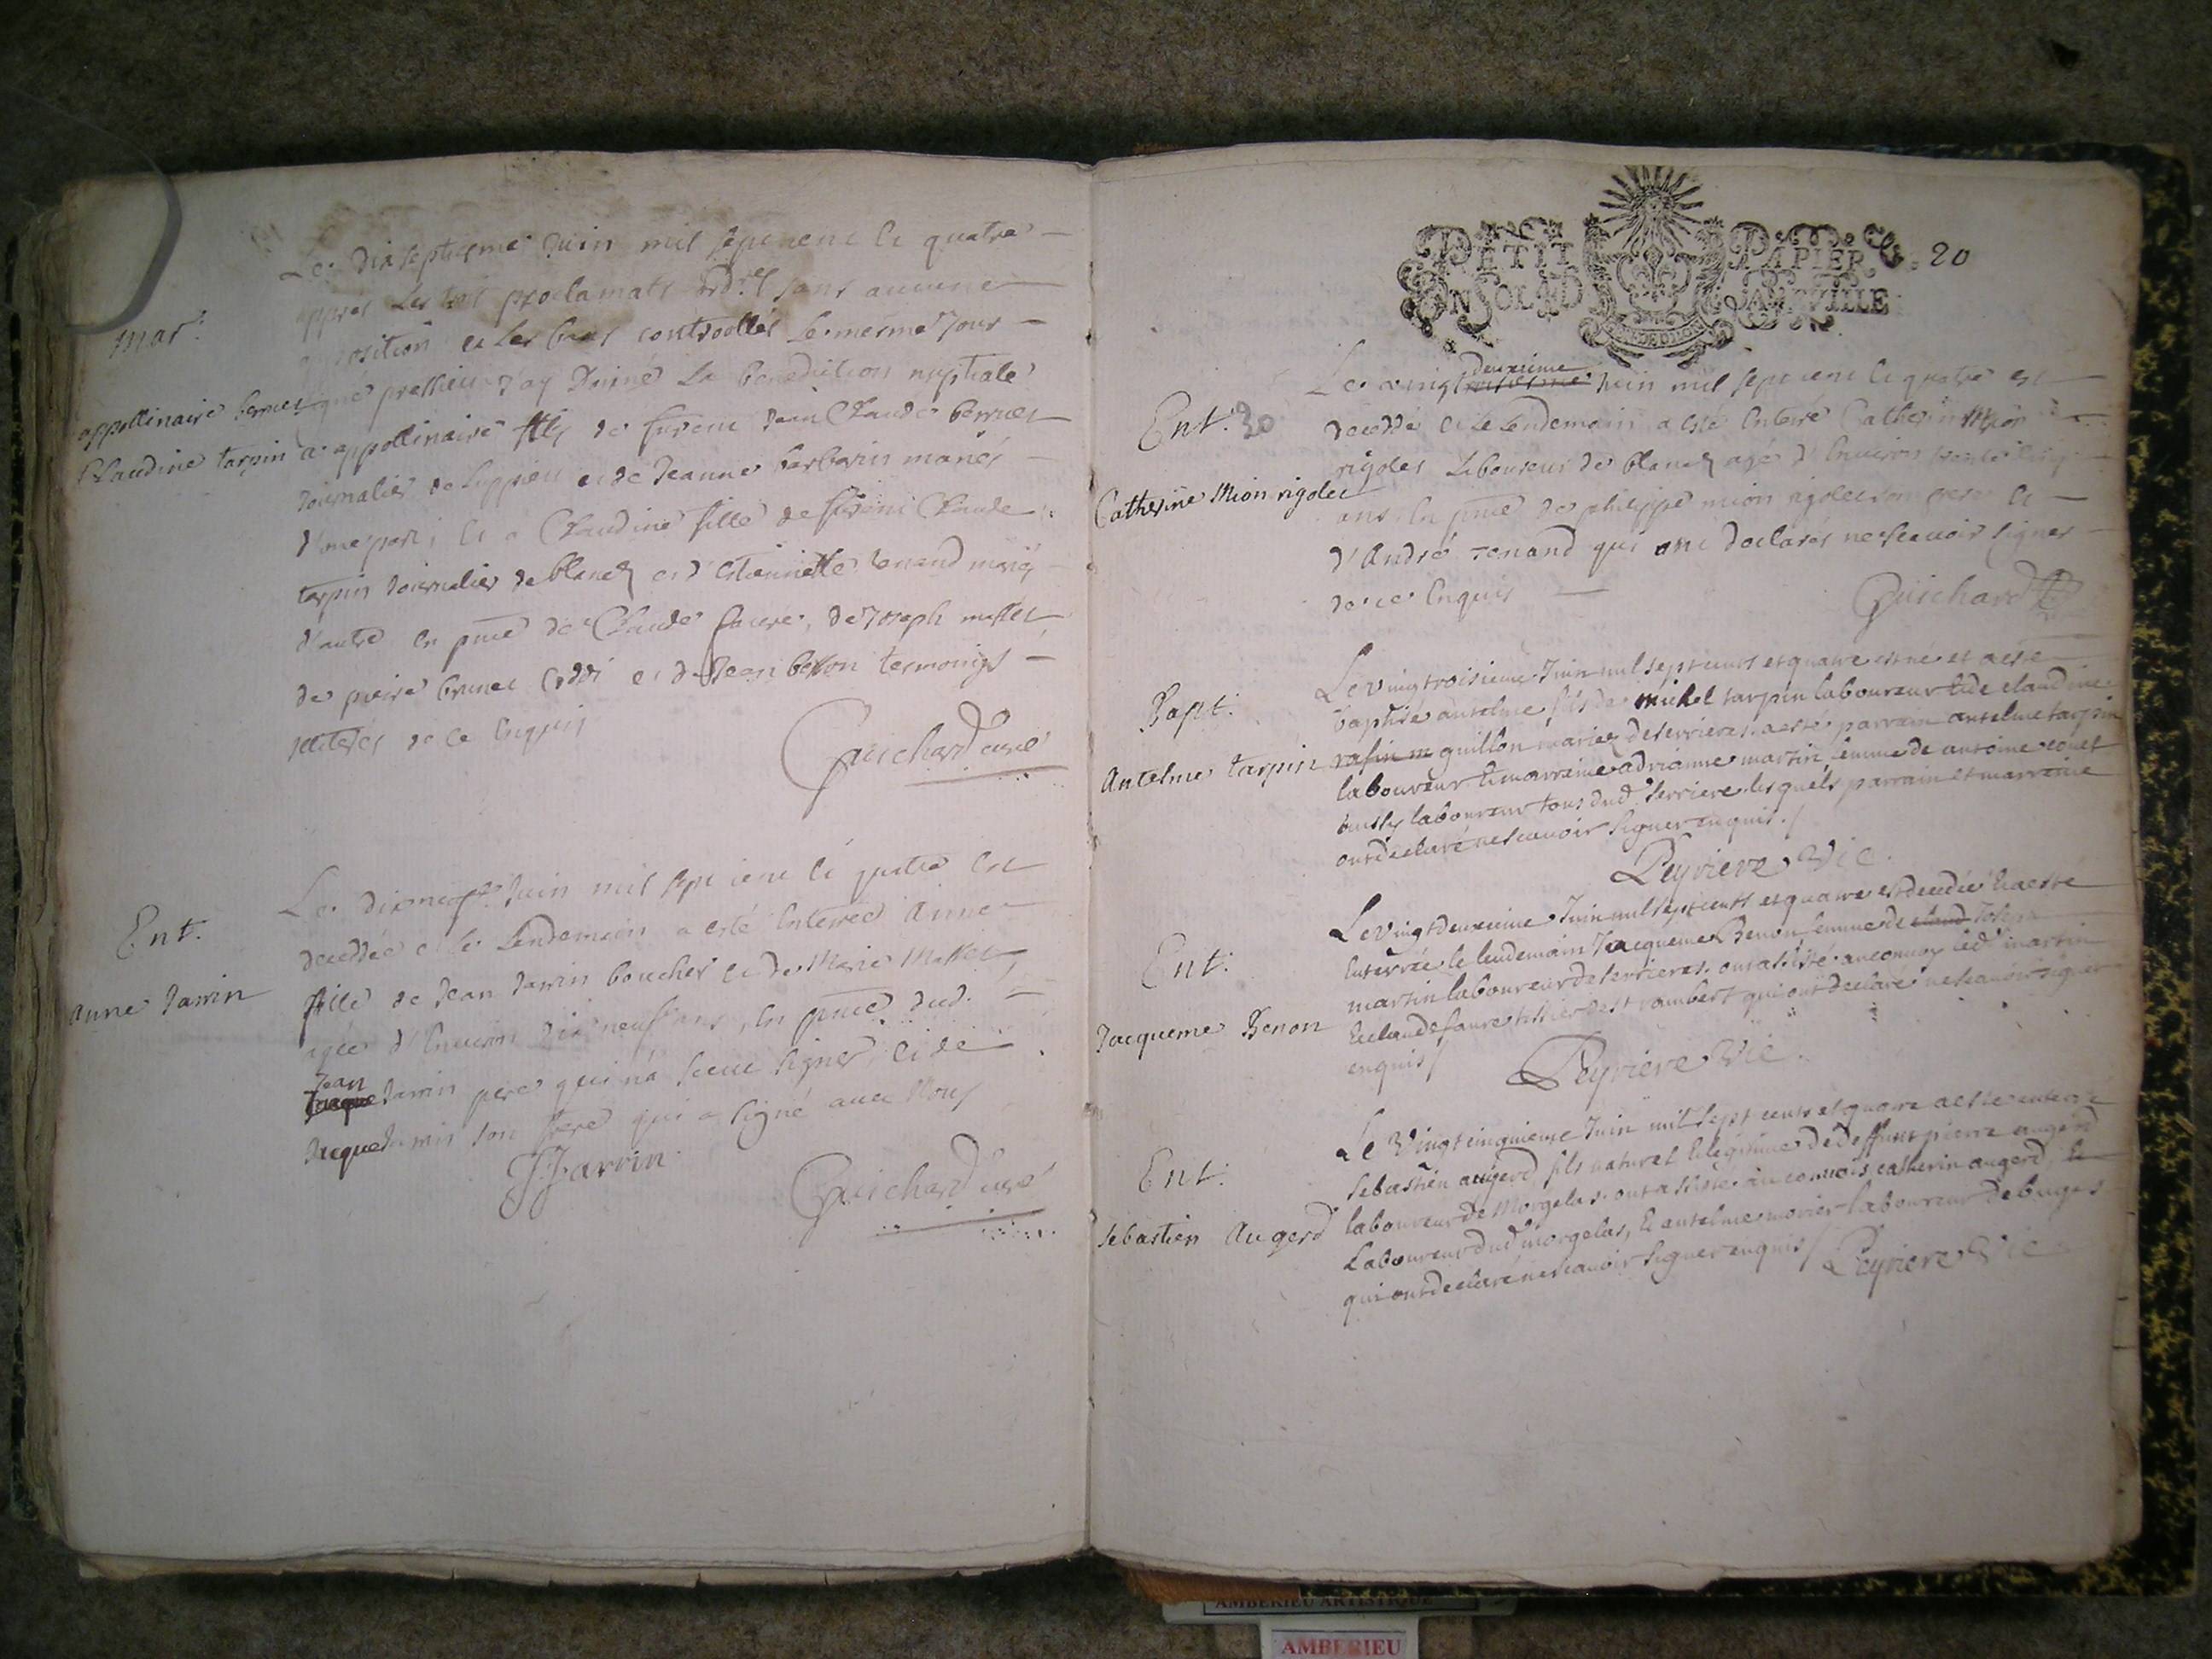 Le dixseptiesme Juin mil sept cent et quatre
Mar.
appres les trois proclamats sans aucune
opposition et les bans controollés le mesme Jour
appollinaire bernet
Claudine tarpin
que J'ay Donné La benediction nuptiale
a appollinaire fils de furent Jean Claude bernet
Journalier de et de Jeanne barbarin mariés
d'une part, et a Claudine fille de furent Claude
tarpin Journalier de blanet et d'Estiennette tenand mariés
d'autre en pnce de Claude faure, de Joseph mallet
de pierre brunet et de Jean tesmoings
de ce Enquis
Guichard curé
Ent.
anne Jarrin
Le dixneufe Juin mil sept cent et quatre est
decedée et le Lendemain a esté Enterrée anne
fille de Jean Jarrin boucher et de Marie Mallet,
agée d'Environ dix neuf ans, en pnce dud.
Jean
Jacque Jarrin pere qui n'a sceu signer, et de
Jacque Jarrin son frere qui a signé avec Nous
J. Jarrin
Guichard curé
PETIT PAPIER
UN SOL LA FEUILLE
20
deuxieme
Le vingt troisiesme Juin mil sept cent et quatre est
Ent. 20
Catherine Mion rigolet
decedé et le Lendemain a esté Enterré Catherin Mion
rigolet Laboureur de blanet agé d'Environ
ans, en pnce de philippe mion rigolet son frere et
d'André tenand qui ont declarés ne scavoir signer
de ce Enquis
Guichard
Bapt.
Antelme tarpin
Le vingtroisieme Juin mil sept cents et quatre est né et a esté
baptisé antelme fils de michel tarpin laboureur et de claudine
rasin m guillon mariez de serrieres. a esté parrain antelme tarpin
laboureur et marraine adrianne martin femme de antoine
aussy laboureur tous dud. serriere lesquels parrain et marraine
ont declaré ne scavoir signer enquis./
Peyriere Vic.
Ent.
Jacqueme Benon
Le vingtdeuxieme Juin mil sept cents et quatre est decedée et a esté
enterrée le lendemain Jacqueme Benon femme de claud Joseph
martin laboureur de serrieres. ont assisté au convoy led. martin
et claude faure tissier de st rambert qui ont declaré ne scavoir signer
enquis/
Peyriere Vic.
Ent.
Sebastien Augerd
Le Vingt cinquieme Juin mil sept cents et quatre a esté enterré
Sebastien augerd, fils naturel et legitime de deffunt pierre augerd
laboureur de Morgelas. ont assisté au convois catherin augerd, le
Laboureur dud. morgelas, et antelme morier laboureur de buges
qui ont declaré ne scavoir signer enquis/ Peyriere Vic
AMBERIEU ARTISTIQUE
AMBERIEU